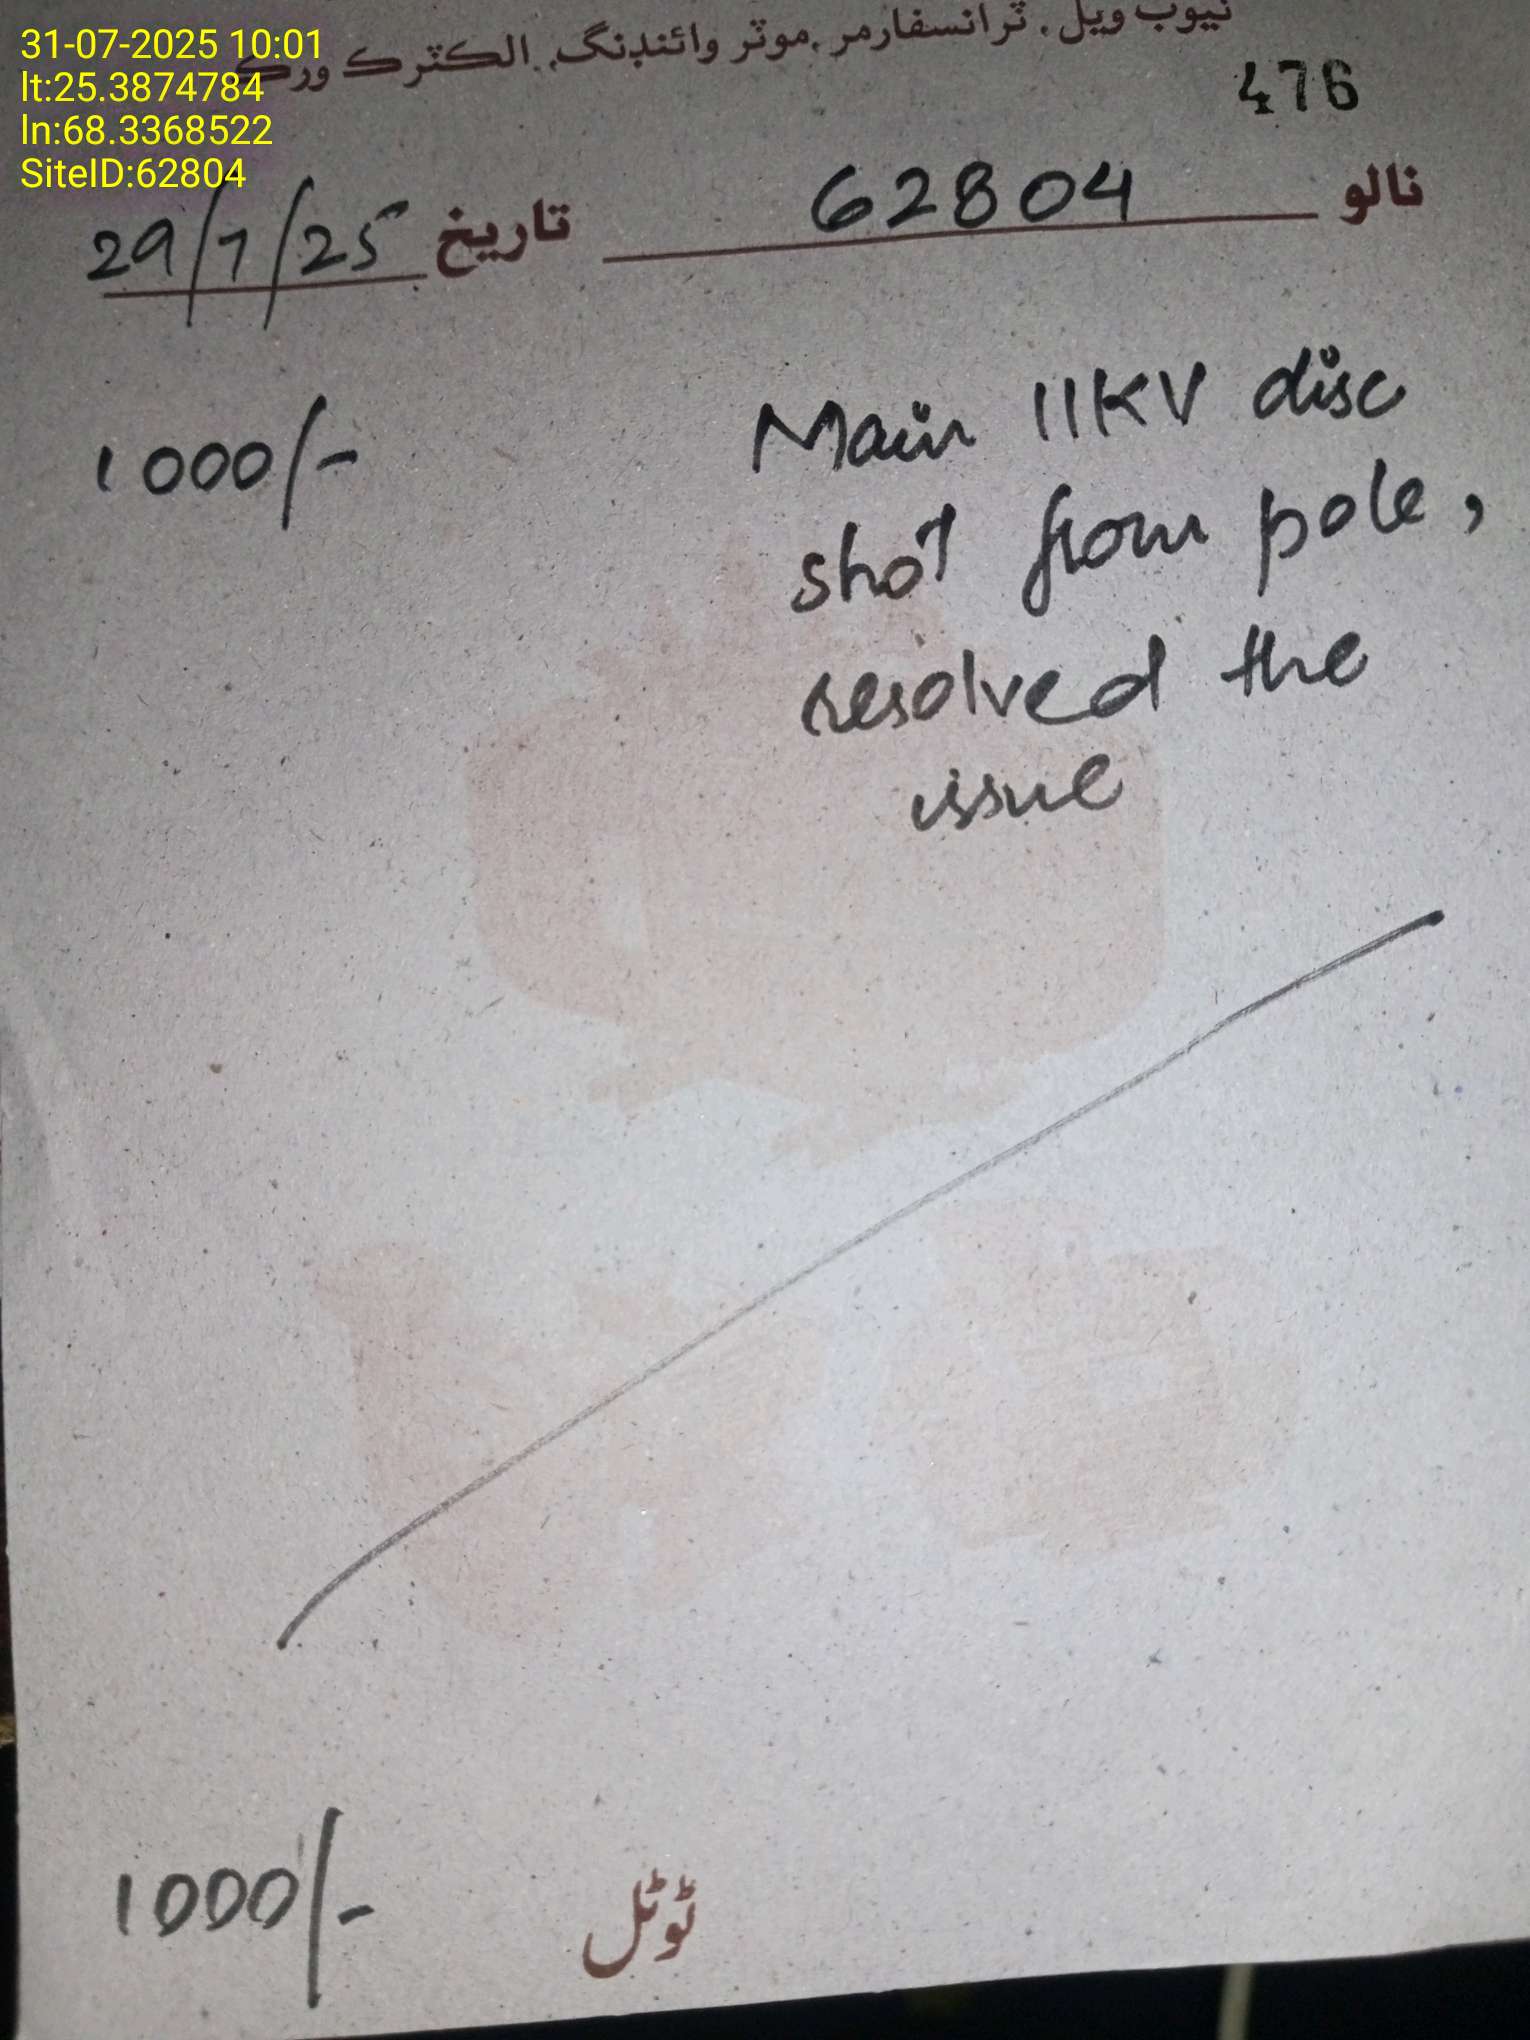 31-07-2025 10:01
lt:25.3874784
ln:68.3368522
SiteID:62804
ٽيوب ويل، ٽرانسفارمر، موٽر وائنڊنگ، اليڪٽرڪ ورڪ
476
نالو 62804 تاريخ 29/7/25
Main 11KV disc 1000/-
shot from pole,
resolved the
issue
ٽوٽل 1000/-